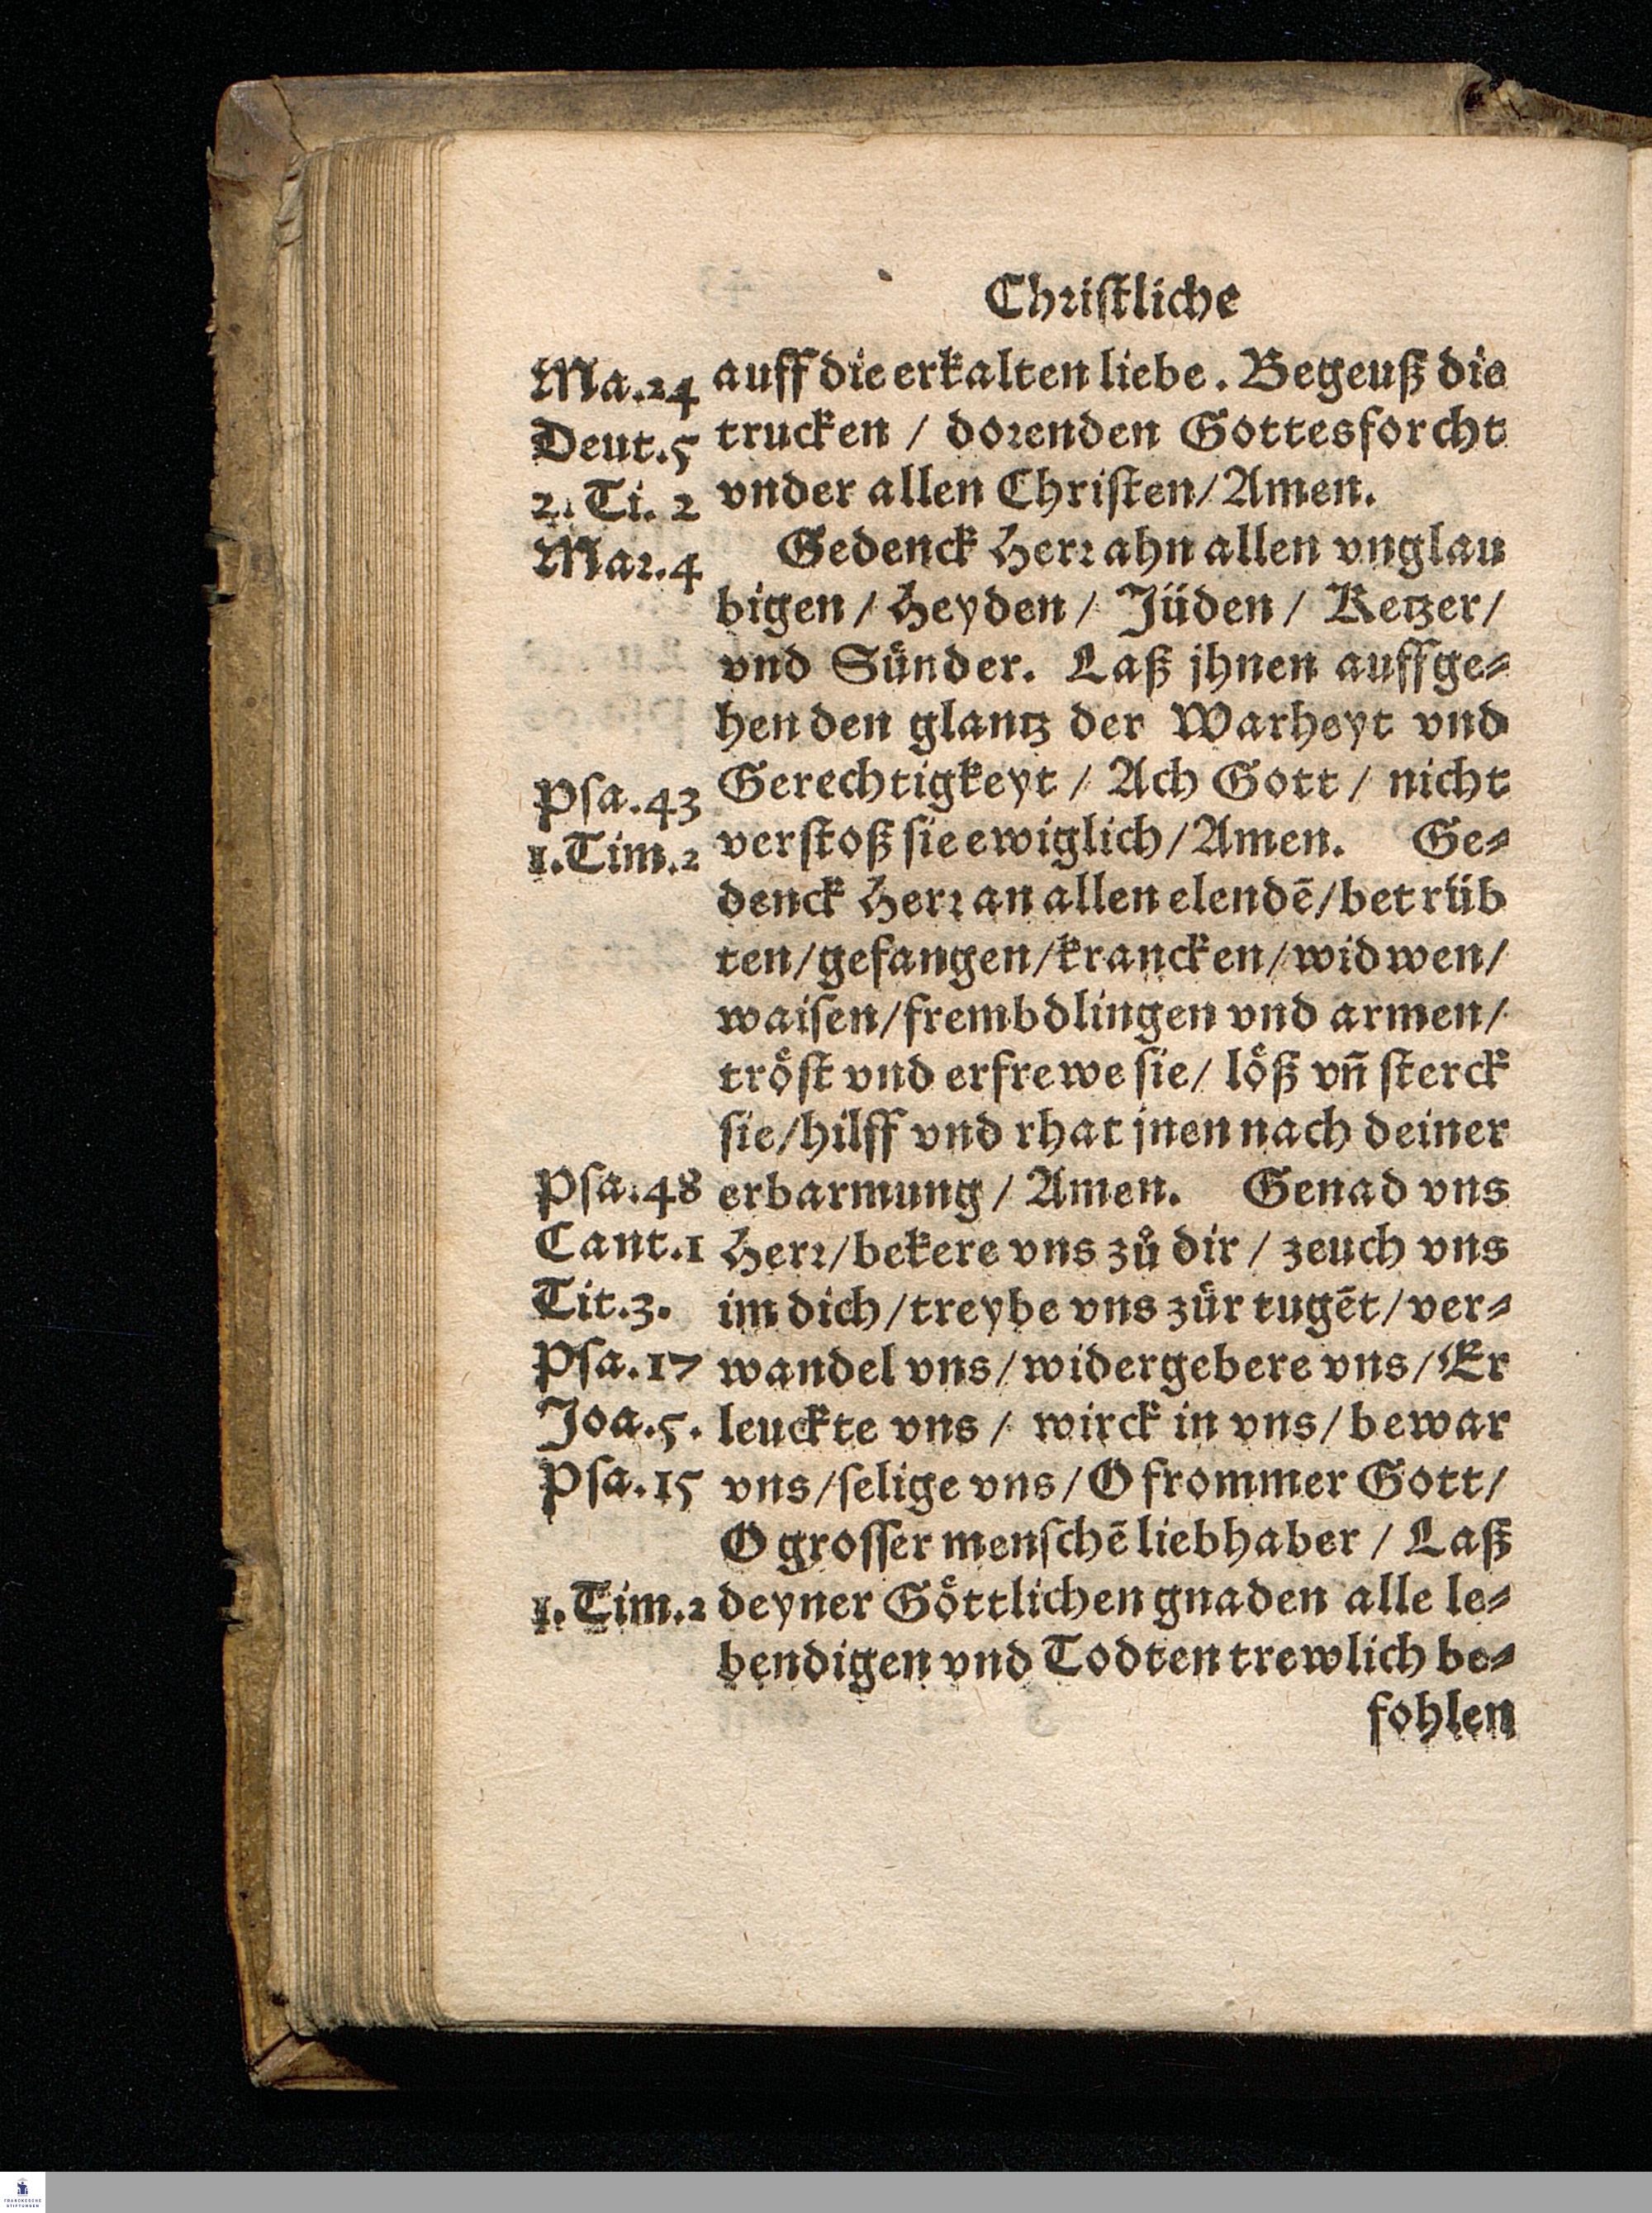 Christliche
Ma.24 auff die erkalten liebe. Begeuß die
Deut.5 trucken / dorenden Gottesforcht
2. Ti. 2 vnder allen Christen/Amen.
Mar.4 Gedenck Herr ahn allen vnglau
bigen / Heyden / Jüden / Ketzer/
vnd Sünder. Laß jhnen auffge⸗
hen den glantz der Warheyt vnd
Psa.43 Gerechtigkeyt / Ach Gott / nicht
1.Tim.2 verstoß sie ewiglich/Amen. Ge⸗
denck Herr an allen elendē/betrüb
ten/gefangen/krancken/widwen/
waisen/frembdlingen vnd armen/
tröst vnd erfrewe sie/ löß vñ sterck
sie/hilff vnd rhat jnen nach deiner
Psa.48 erbarmung / Amen. Genad vns
Cant.1 Herr/bekere vns zů dir / zeuch vns
Tit.3. im dich/treybe vns zür tugēt/ver⸗
Psa.17 wandel vns/widergebere vns/Er
Joa.5. leuckte vns / wirck in vns/bewar
Psa.15 vns/selige vns/O frommer Gott/
O grosser menschē liebhaber / Laß
1.Tim.2 deyner Göttlichen gnaden alle le⸗
bendigen vnd Todten trewlich be⸗
fohlen
FRANCKESCHE
STIFTUNGEN